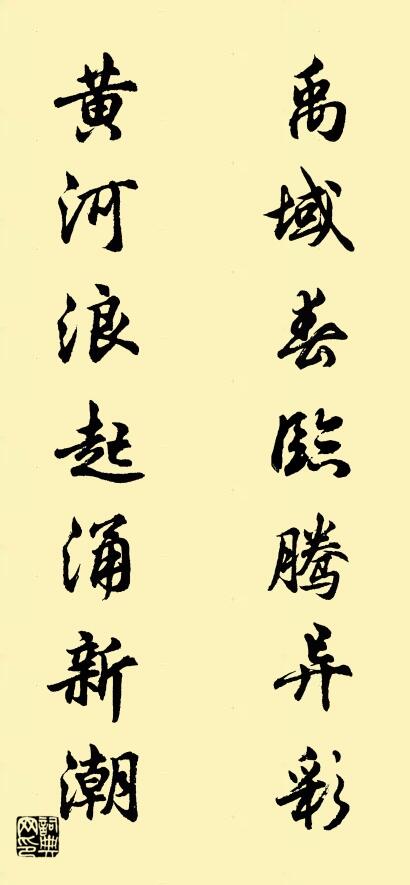 禹域春臨腾异彩
黄河浪起涌新潮
詞典网印